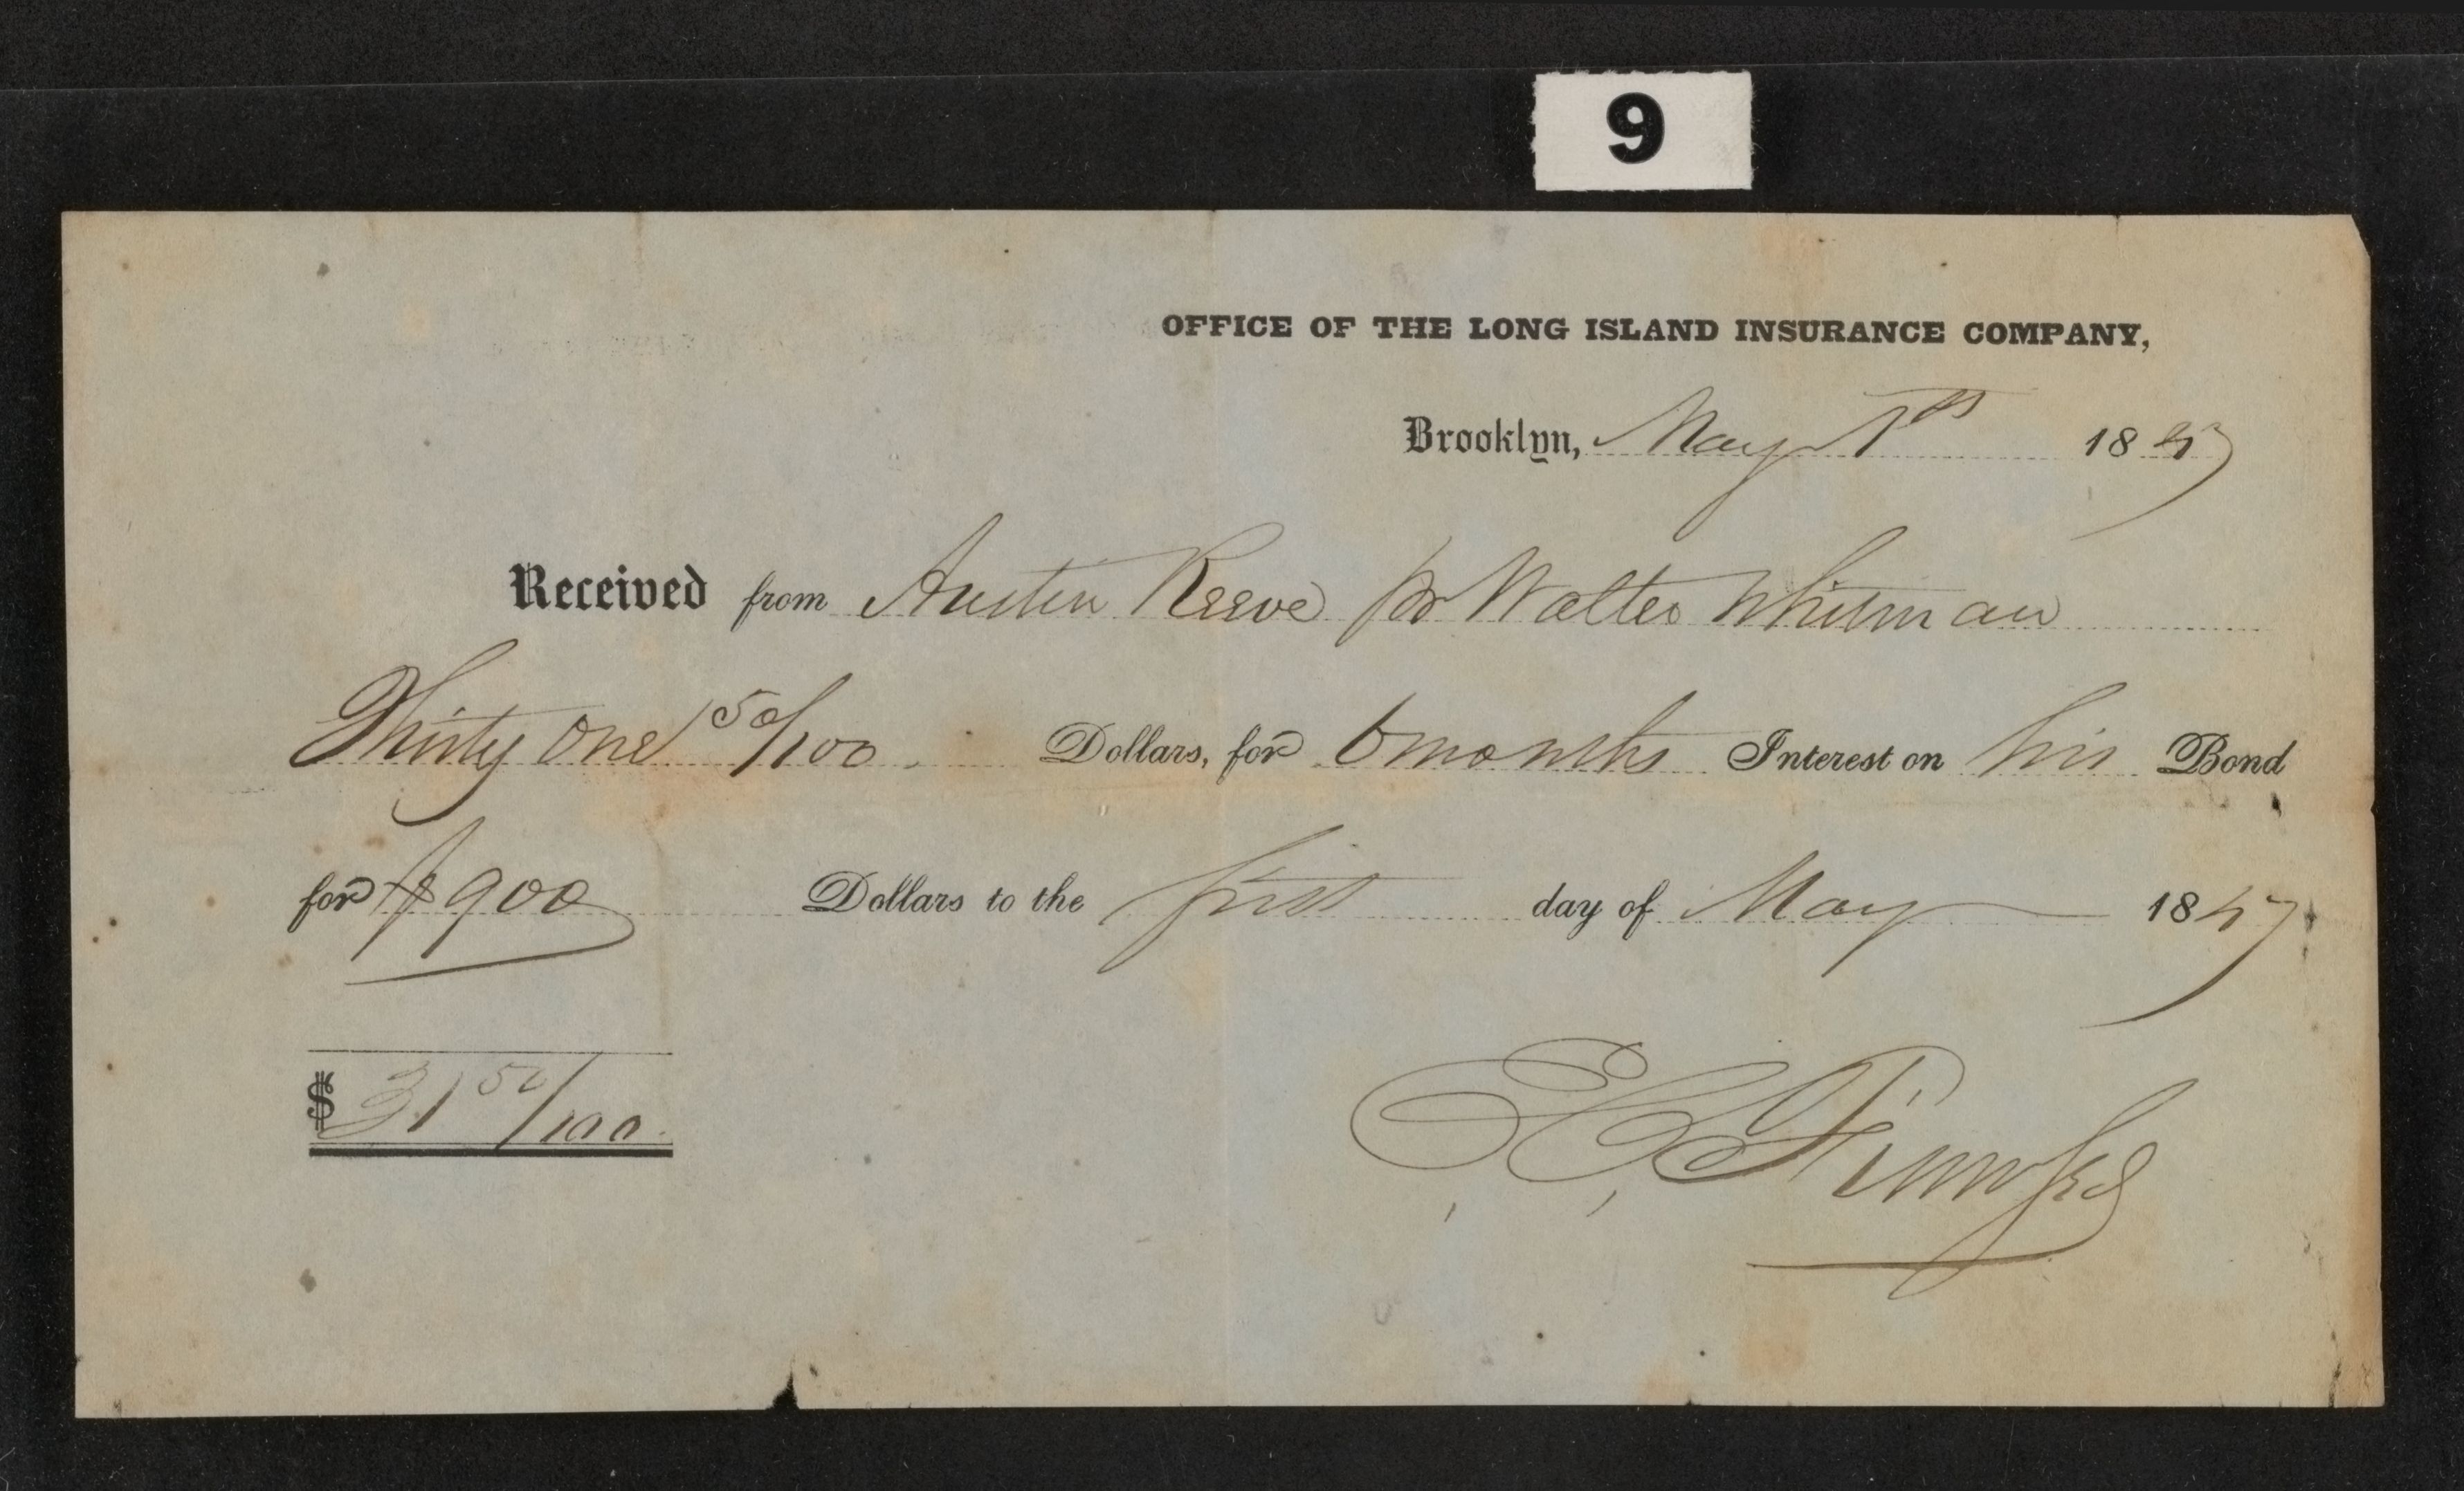 9
OFFICE OF THE LONG ISLAND INSURANCE COMPANY,
Brooklyn, May 1st 1847
Received from Austin Reeve pr Walter Whitman
Thirty One 50/100 Dollars, for 6 months Interest on his Bond
for $900 Dollars to the first day of May 1847
$ 31 50/100